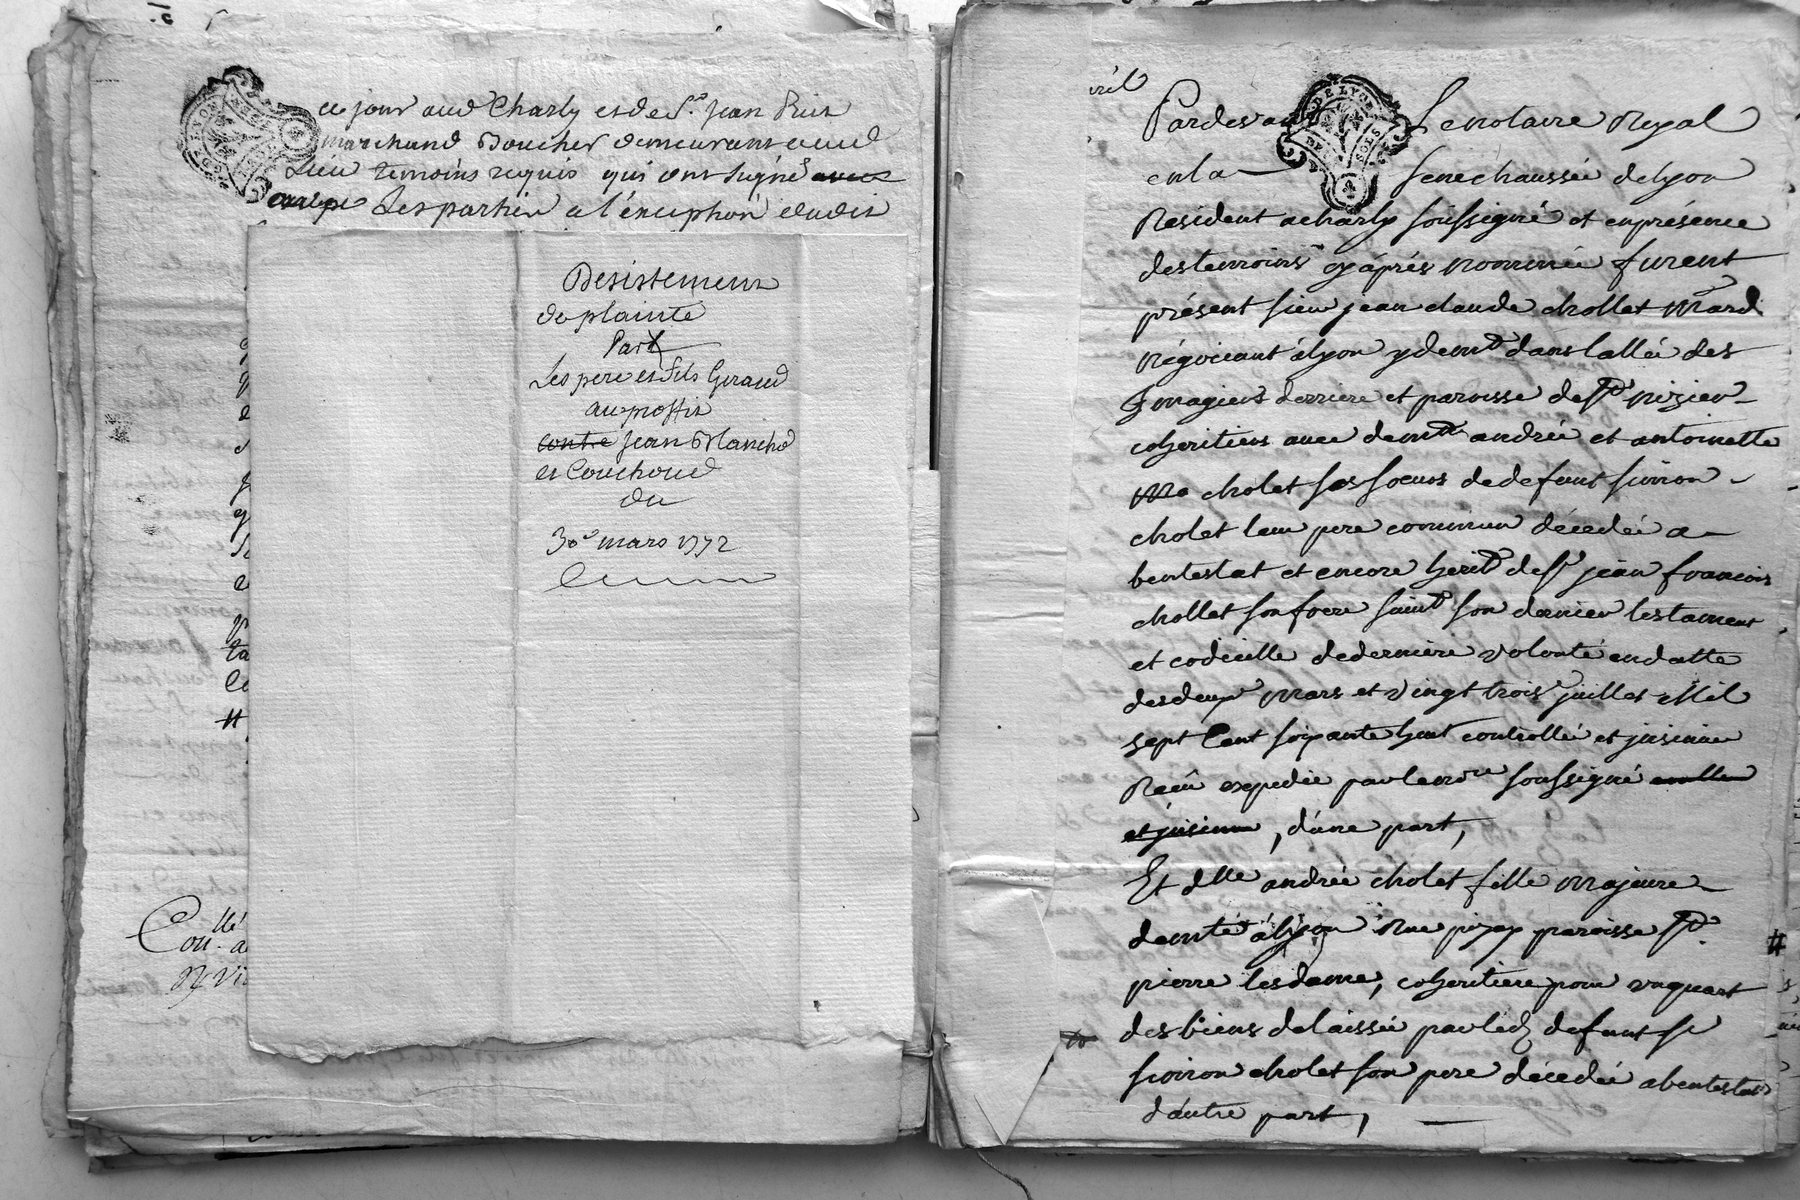 ce jour aud Charly et de Sr. Jean
marchand Boucher demeurant aud
Lieu temoins requis qui ont signé avec
Les parties a l'exception dudit
Desistement
de plainte
Part
Les pere et fils Giraud
au proffit
contre Jean Blanchd
et Couchoud
du
30e mars 1772
Coll.lé
ta
#
vril
Pardevant Le notaire Royal
en la Senechaussée de lyon
Resident a charly soussigné et en présence
des temoins cy aprés nommée furent
présent sieur jean claude chollet Mard
négociant à lyon y demt dans lallée des
Jmagiers derriere et paroisse de St nizier
coheritiers avec demlle andrée et antoinette
cholet ses soeurs de defunt simon
cholet leur pere commun décedée a
bentestat et encore herit de Sr jean francois
chollet son frere suivt son dernier testament
et codicille de derniere volonté en datte
des deux mars et vingt trois juillet Mil
sept Cent soixante huit controllé et jnsinué
Recû expedié par le nore soussigné
et jnsinué, d'une part,
Et dlle andrée cholet fille Majeure
demte à lyon Rue pizay paroisse St
pierre les dame, coheritiere pour un quart
des biens delaissée par led defunt sr
simon cholet son pere décedée abentestat
d'autre part,
DE LYON
DEUX SOLS